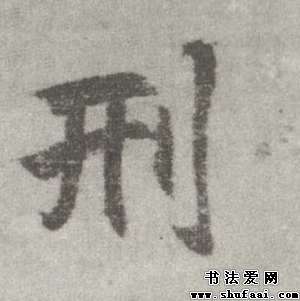 刑
书法爱网
www.shufaai.com